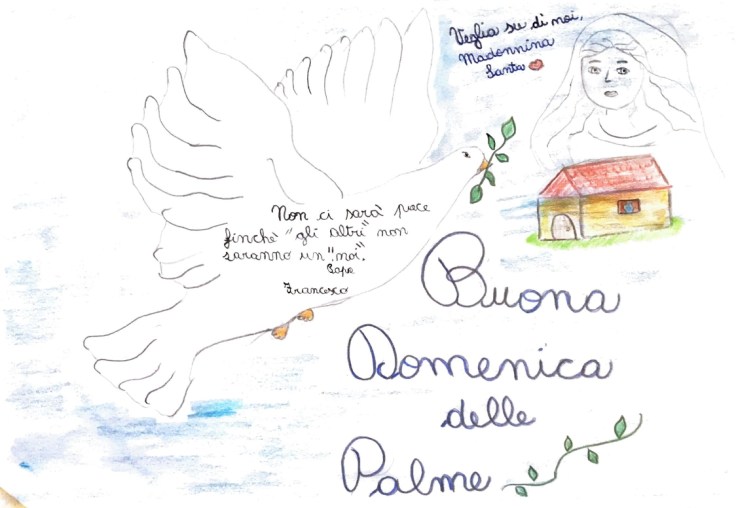 Veglia su di noi,
Madonnina
Santa
Non ci sarà pace
finchè "gli altri" non
saranno un "noi".
Papa
Francesco
Buona
Domenica
delle
Palme